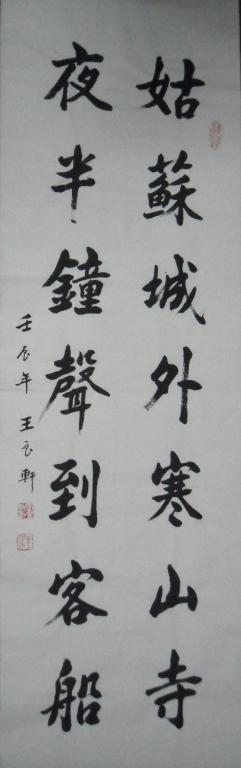 姑蘇城外寒山寺
夜半鐘聲到客船
壬辰年 王言軒